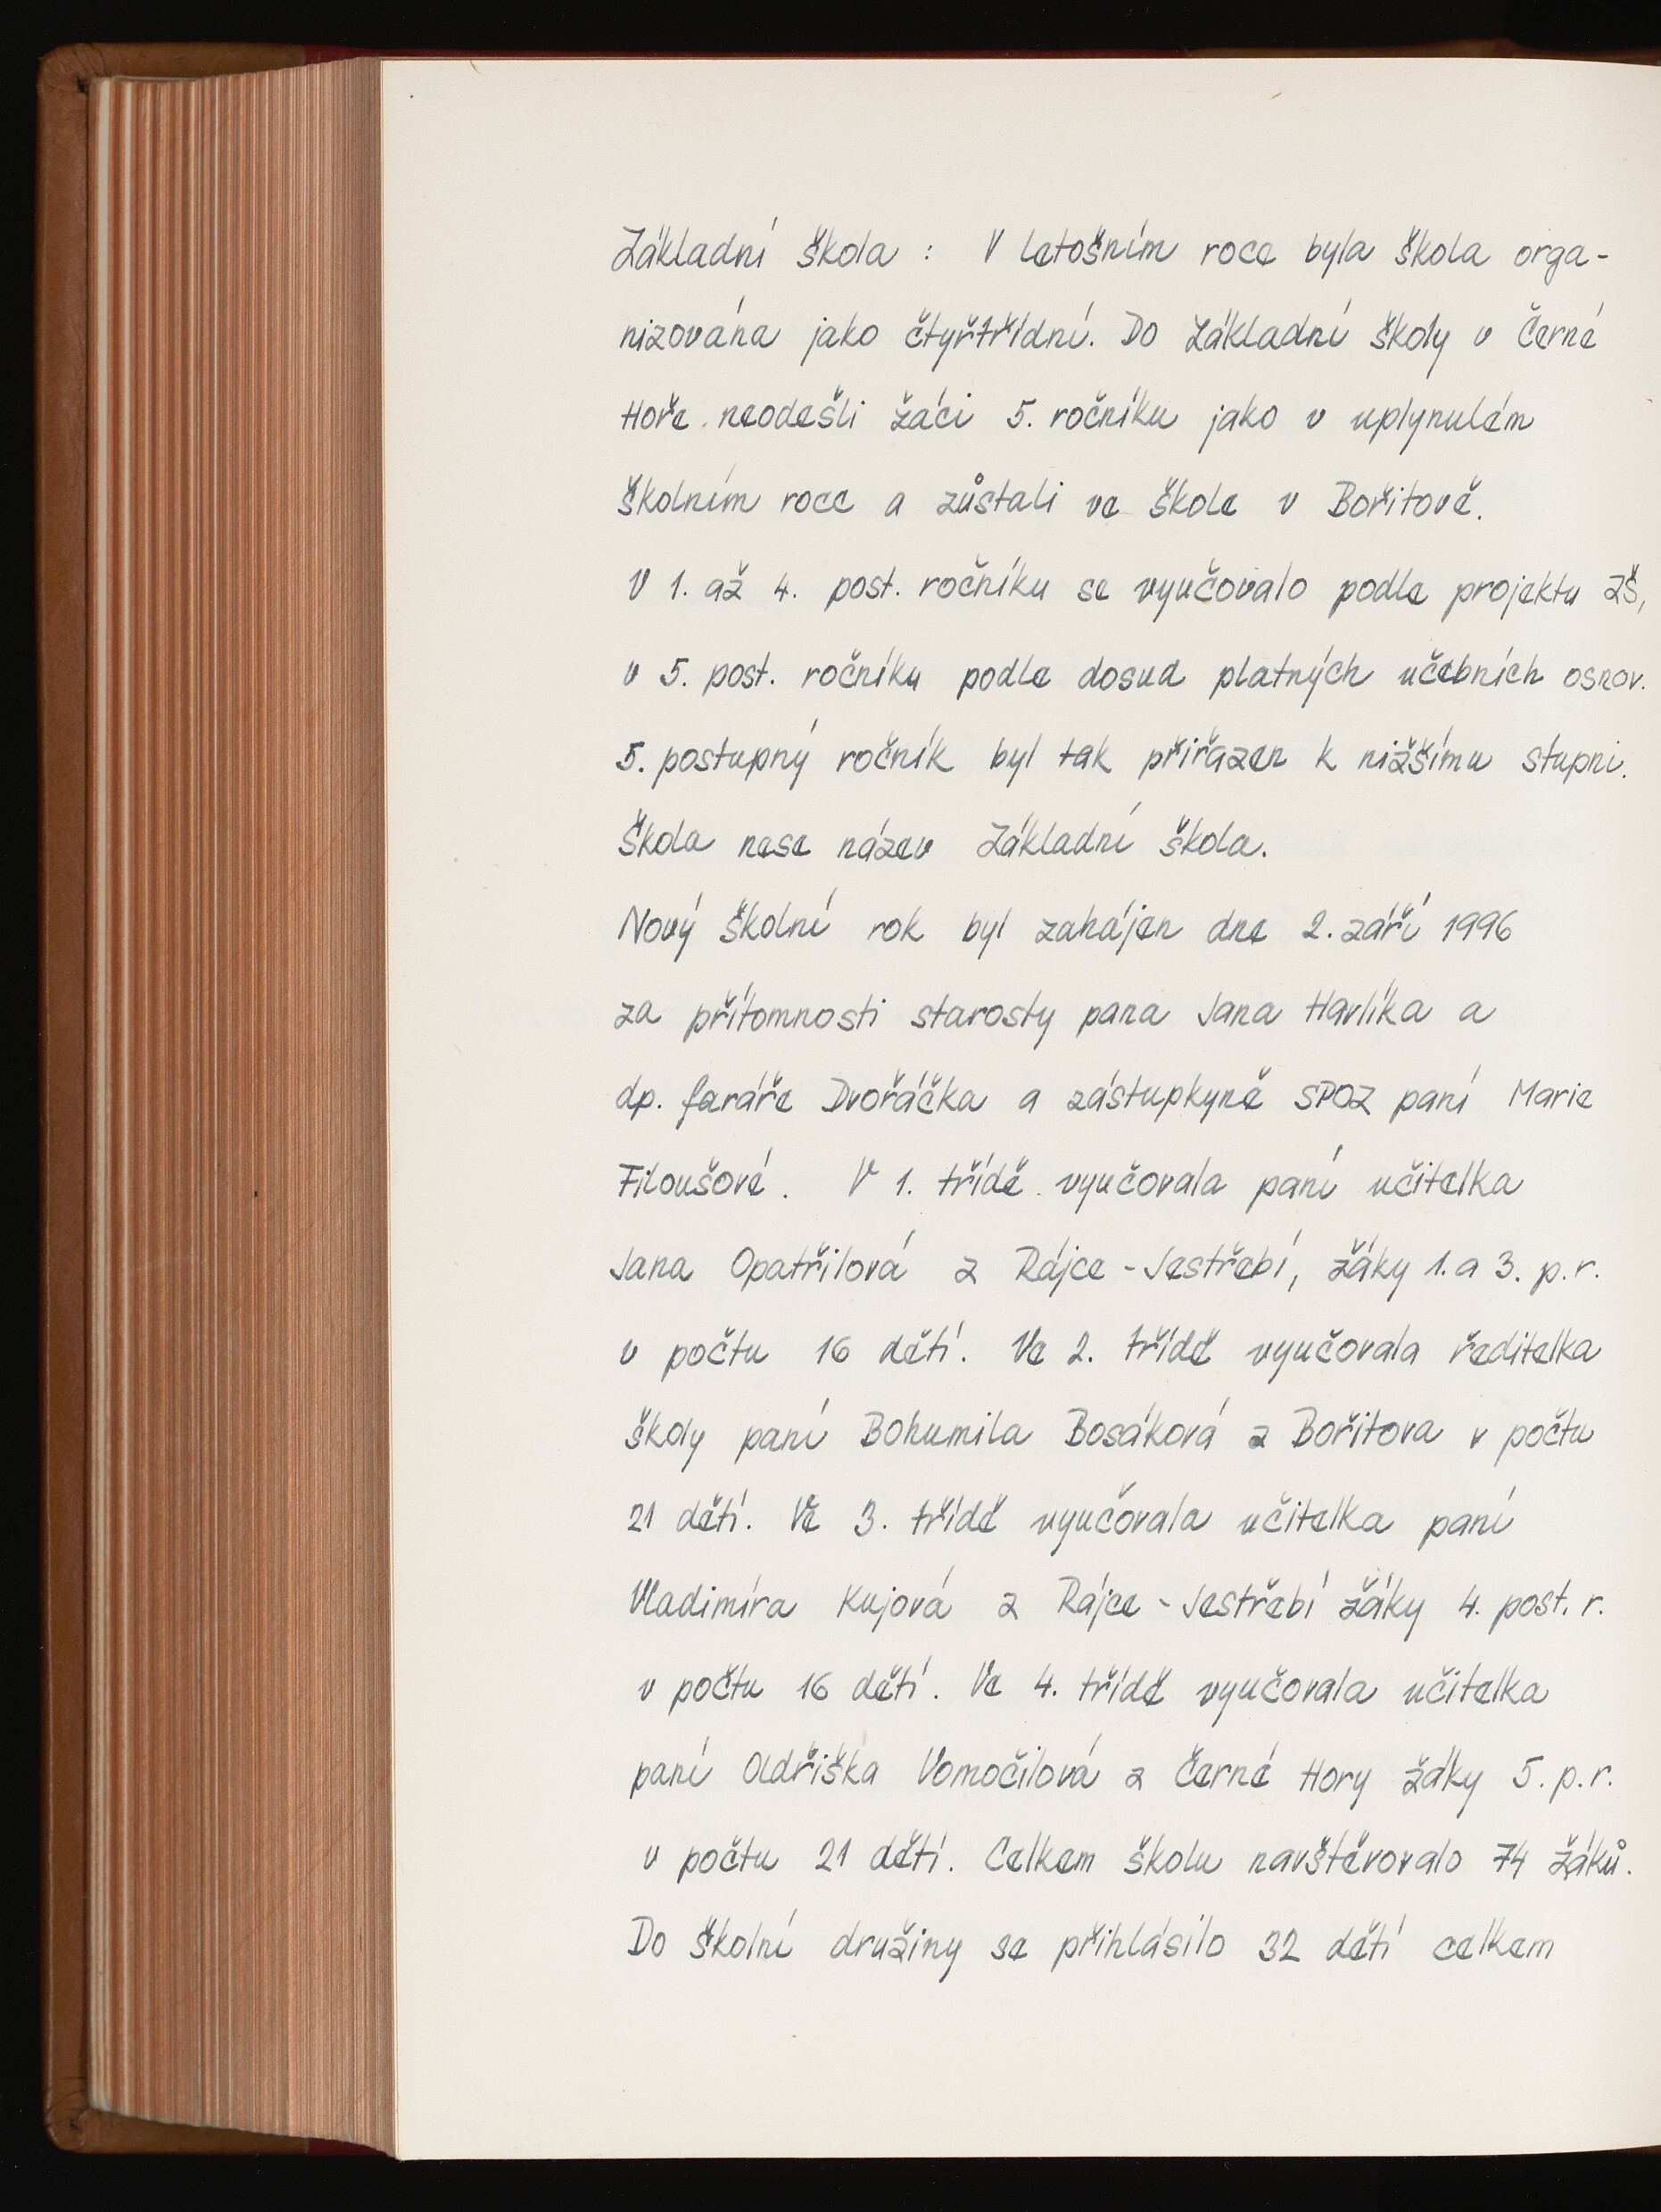 Základní škola : V letošním roce byla škola orga-
nizována jako čtyřtřídní. Do Základní školy v Černé
Hoře neodešli žáci 5. ročníku jako v uplynulém
školním roce a zůstali ve škole v Bořitově.
V 1. až 4. post. ročníku se vyučovalo podle projektu ZŠ,
v 5. post. ročníku podle dosud platných učebních osnov.
5. postupný ročník byl tak přiřazen k nižšímu stupni.
Škola nese název Základní škola.
Nový školní rok byl zahájen dne 2. září 1996
za přítomnosti starosty pana Jana Havlíka a
dp. faráře Dvořáčka a zástupkyně SPOZ paní Marie
Filoušové. V 1. třídě vyučovala paní učitelka
Jana Opatřilová z Rájce-Jestřebí, žáky 1. a 3. p. r.
v počtu 16 dětí. Ve 2. třídě vyučovala ředitelka
školy paní Bohumila Bosáková z Bořitova v počtu
21 dětí. Ve 3. třídě vyučovala učitelka paní
Vladimíra Kujová z Rájce-Jestřebí žáky 4. post. r.
v počtu 16 dětí. Ve 4. třídě vyučovala učitelka
paní Oldřiška Vomočilová z Černé Hory žáky 5. p. r.
v počtu 21 dětí. Celkem školu navštěvovalo 74 žáků.
Do školní družiny se přihlásilo 32 dětí celkem